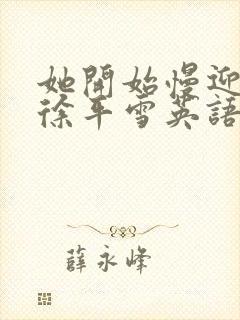 她開始慢迎
徐平雪英語
薛永峰